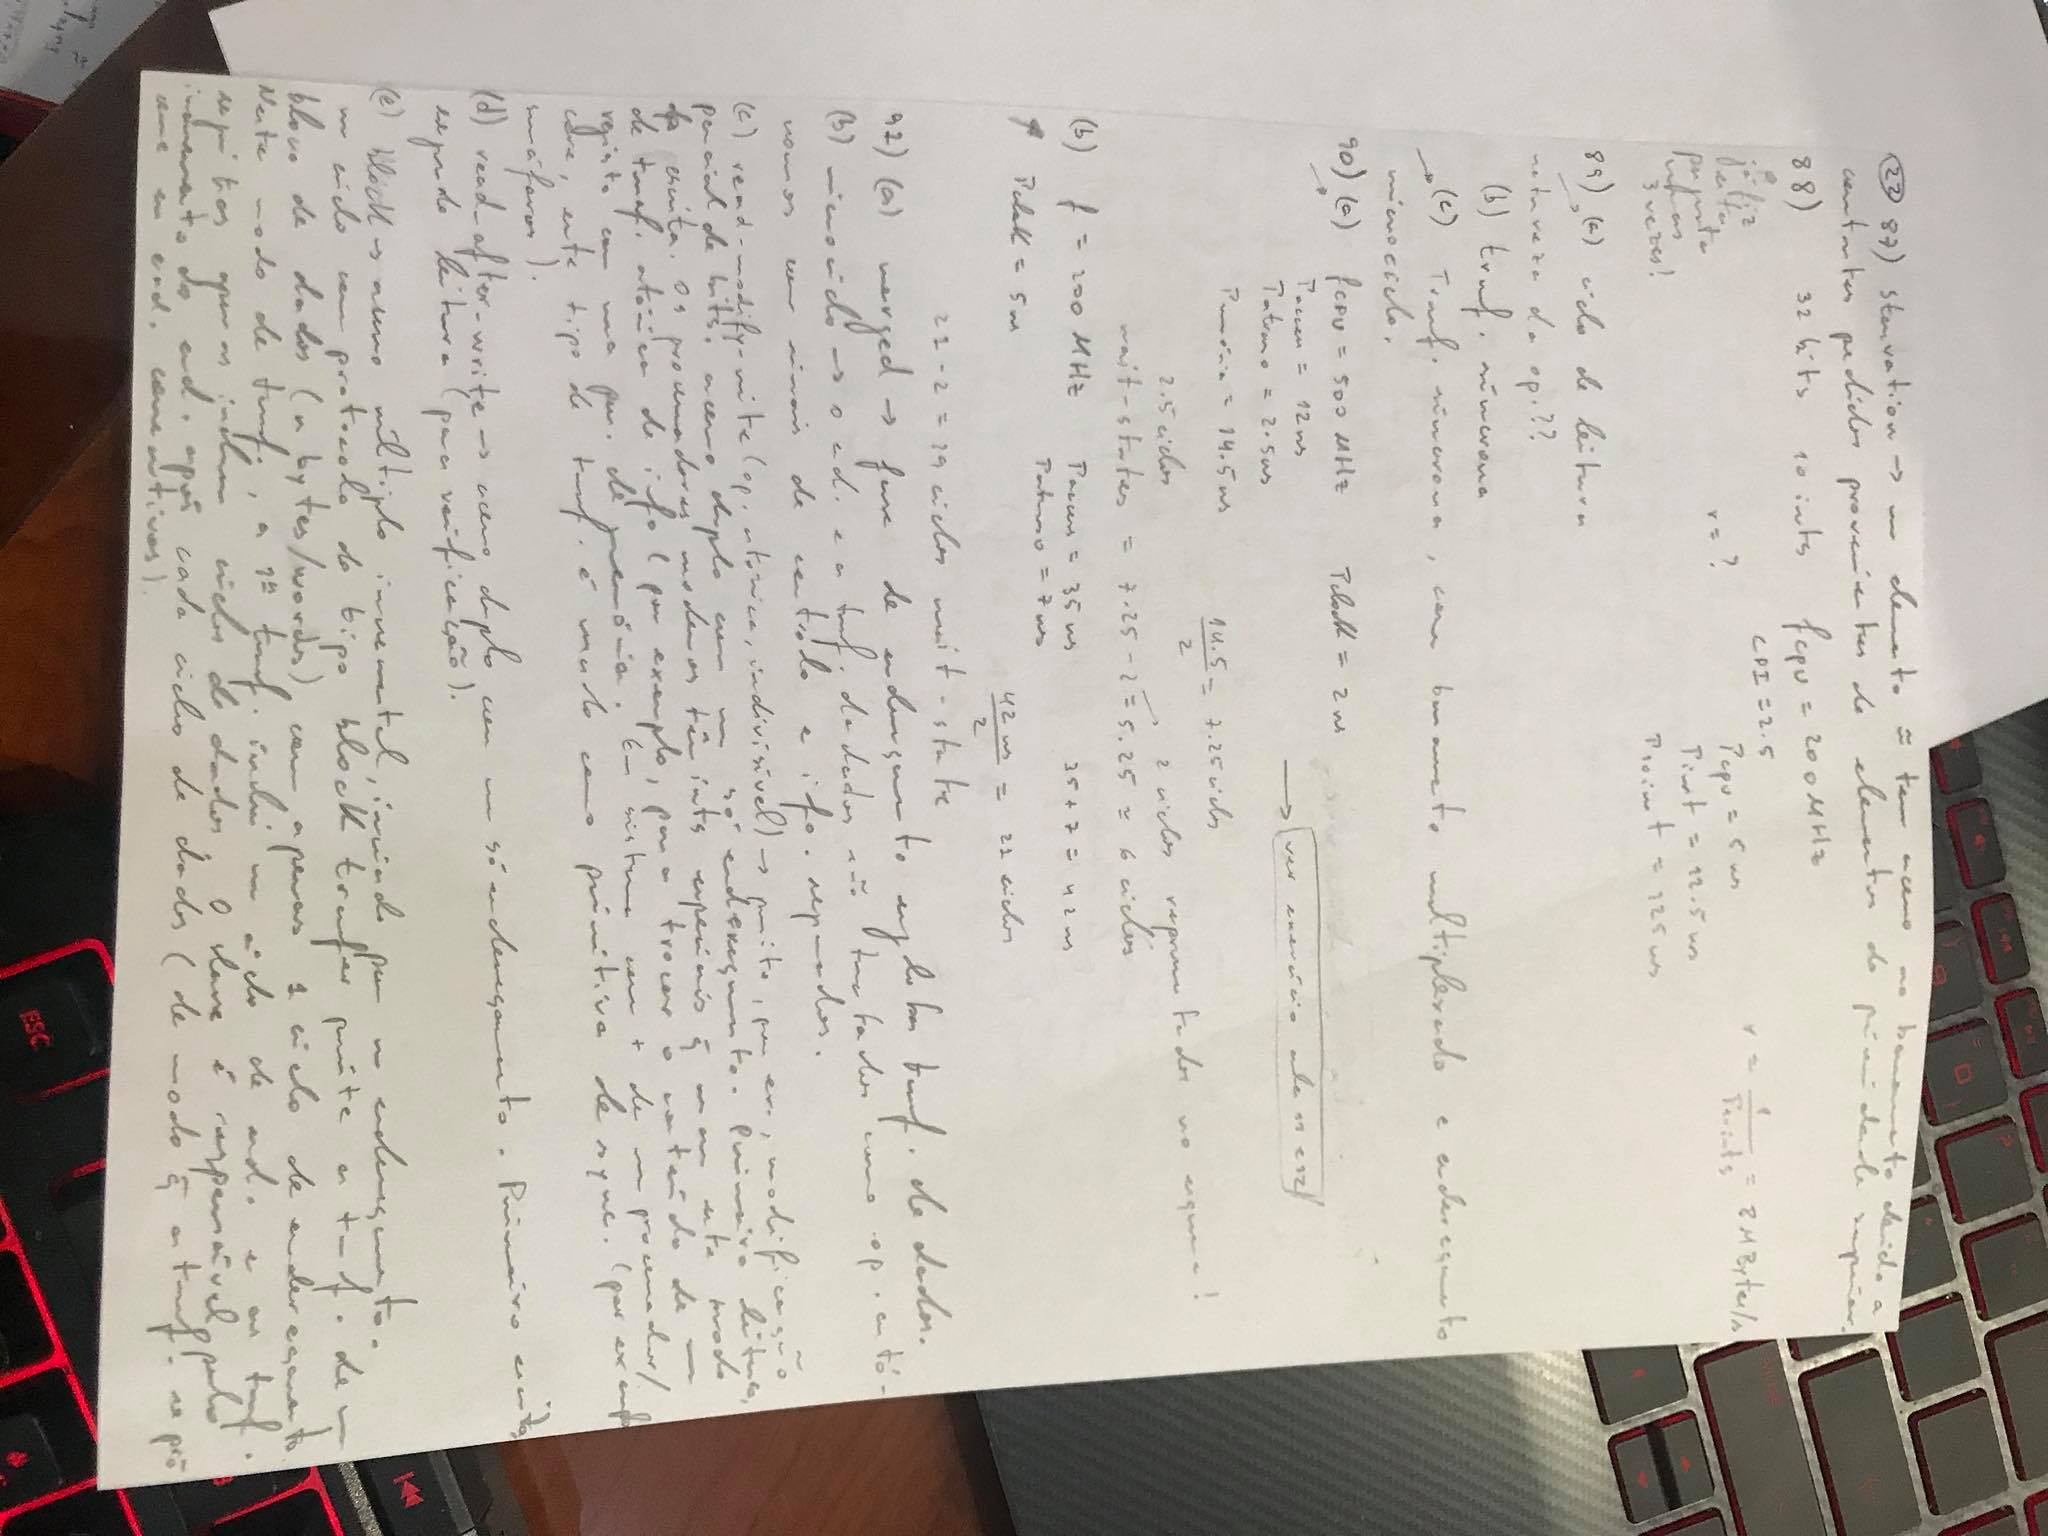 22 87) Starvation → um elemento ñ tem acesso ao barramento devido a
constantes pedidos provenientes de elementos de prioridade superior.
88) 32 bits 10 insts fCPU = 200 MHz
CPI = 2.5
já fiz
esta
pergunta
umas
3 vezes!
r = ?
TCPU = 5 ns
Tinst = 12.5 ns
T10inst = 125 ns
r = 1 / T10insts = 8 MBytes/s
89) (a) ciclo de leitura
natureza da op.??
(b) transf. síncrona
(c) Transf. síncrona, com barramento multiplexado e endereçamento
microciclo.
90) (a) fCPU = 500 MHz Tclock = 2 ns
Tacesso = 12 ns
→ ver exercício aula 11 e 12
Tatraso = 2.5 ns
Tmemória = 14.5 ns 14.5 / 2 = 7.25 ciclos
2.5 ciclos 2 ciclos representados no esquema!
wait-states = 7.25 - 2 = 5.25 ≈ 6 ciclos
(b) f = 200 MHz Tacesso = 35 ns 35 + 7 = 42 ns
Tatraso = 7 ns
Tclock = 5 ns
42 ns / 2 = 21 ciclos
21 - 2 = 19 ciclos wait-state
91) (a) merged → fase de endereçamento engloba transf. de dados.
(b) microciclo → o end. e a transf. de dados são tratados como op. autó-
nomas com sinais de controlo e ifo. separados.
(c) read-modify-write (op. atómica, indivisível) → permite, por ex., modificação
parcial de bits. acesso duplo com um só endereçamento. Primeiro leitura,
dps escrita. Os processadores modernos têm insts especiais q̃ usam este modo
de transf. atómica de ifo (por exemplo, para trocar o conteúdo de um
registo com uma pos. de memória. Em sistemas com + de um processador/
core, este tipo de transf. é usado como primitiva de sync. (por exemplo
semáforos).
(d) read-after-write → acesso duplo com um só endereçamento. Primeiro escrita,
segundo leitura (para verificação).
(e) block → acesso múltiplo incremental, iniciado por um endereçamento.
um ciclo com protocolo do tipo block transfer permite a transf. de um
bloco de dados (n bytes/words) com apenas 1 ciclo de endereçamento.
Neste modo de transf., a 1ª transf. inclui um ciclo de end. e as transf.
seguintes apenas incluem ciclos de dados. O slave é responsável pelo
incremento do end. após cada ciclo de dados (de modo q̃ a transf. se pro
cesse em end. consecutivos).